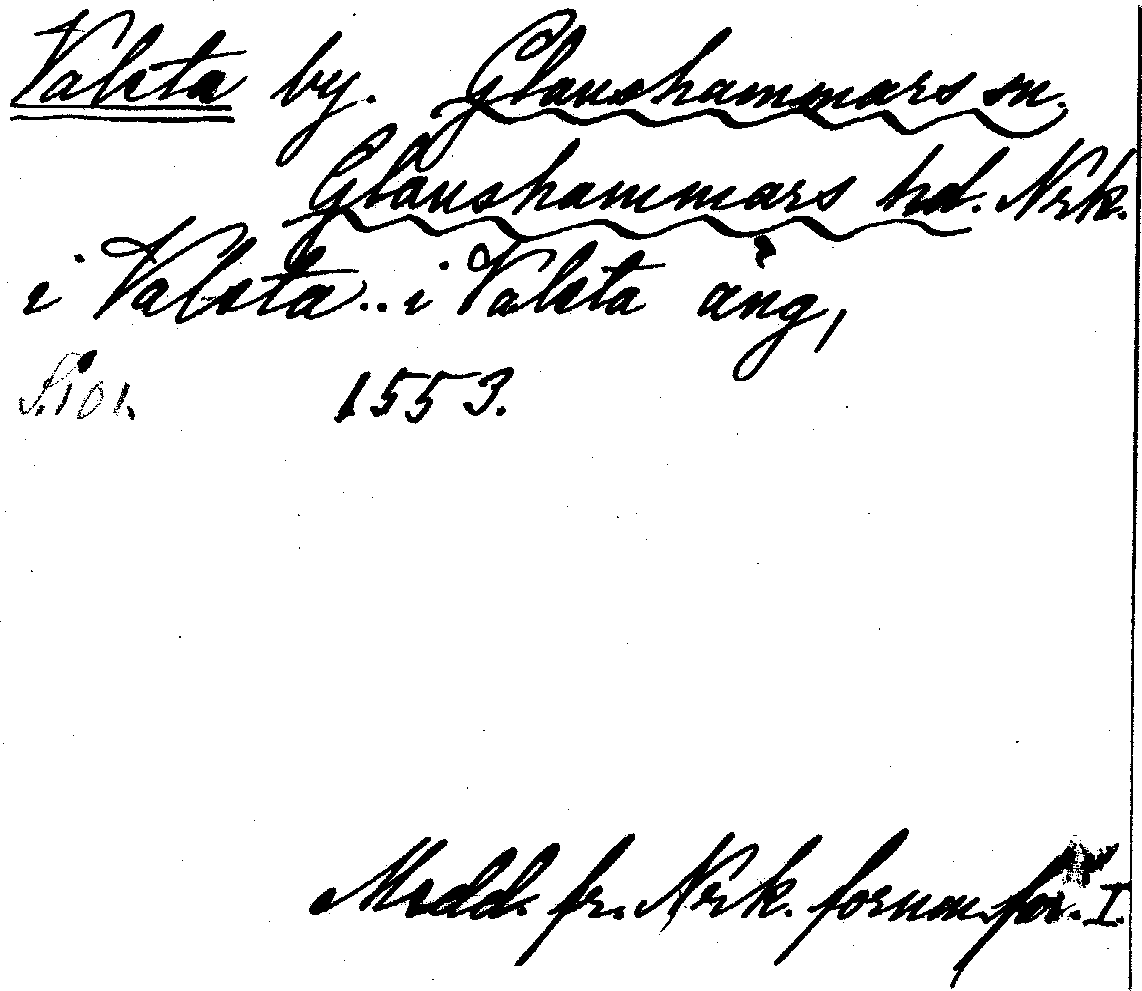 Valsta by. Glanshammars sn.
Glanshammars hd. Nrk.
i Valsta .. i Valsta äng,
S. 101. 1553.
Medd. fr. Nrk. fornm. för. I.